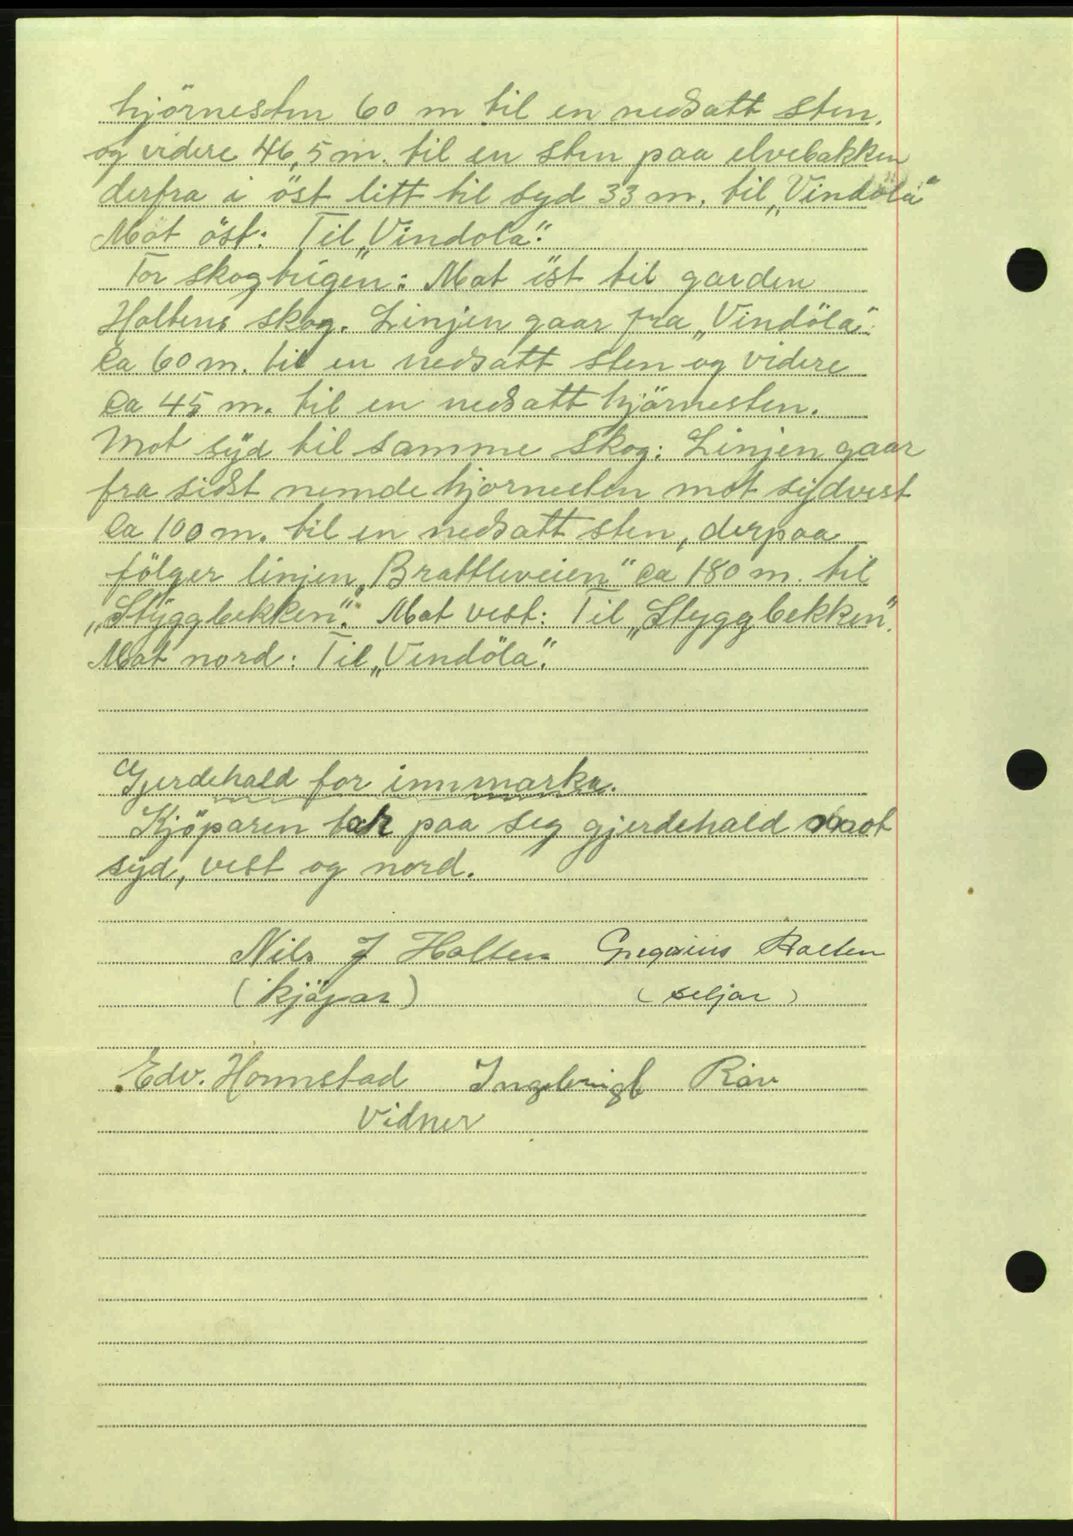 hjörnesten 60 m til en nedsatt sten.
og videre 46,5 m. til en sten paa elvebakken
derfra i öst litt til syd 33 m. til „Vindöla"
Mot öst: Til „Vindola".
For skogteigen: Mot öst til garden
Holtens skog. Linjen gaar fra „Vindöla".
Ca 60 m. til en nedsatt sten og videre
Ca 45 m. til en nedsatt hjörnesten.
Mot syd til samme skog: Linjen gaar
fra sidst nemde hjornesten mot sydvest
Ca 100 m. til en nedsatt sten, derpaa
fölger linjen „Brattleveien" Ca 180 m. til
„Styggbekken". Mot vest: Til „Styggbekken".
Mot nord: Til „Vindöla".
Gjerdehald for innmarka.
Kjöparen tek paa seg gjerdehald mot
syd, vest og nord.
Nils J Holten Gregarius Holten
(kjöpar) (seljar)
Edv. Homstad Ingebrigt
Vidner